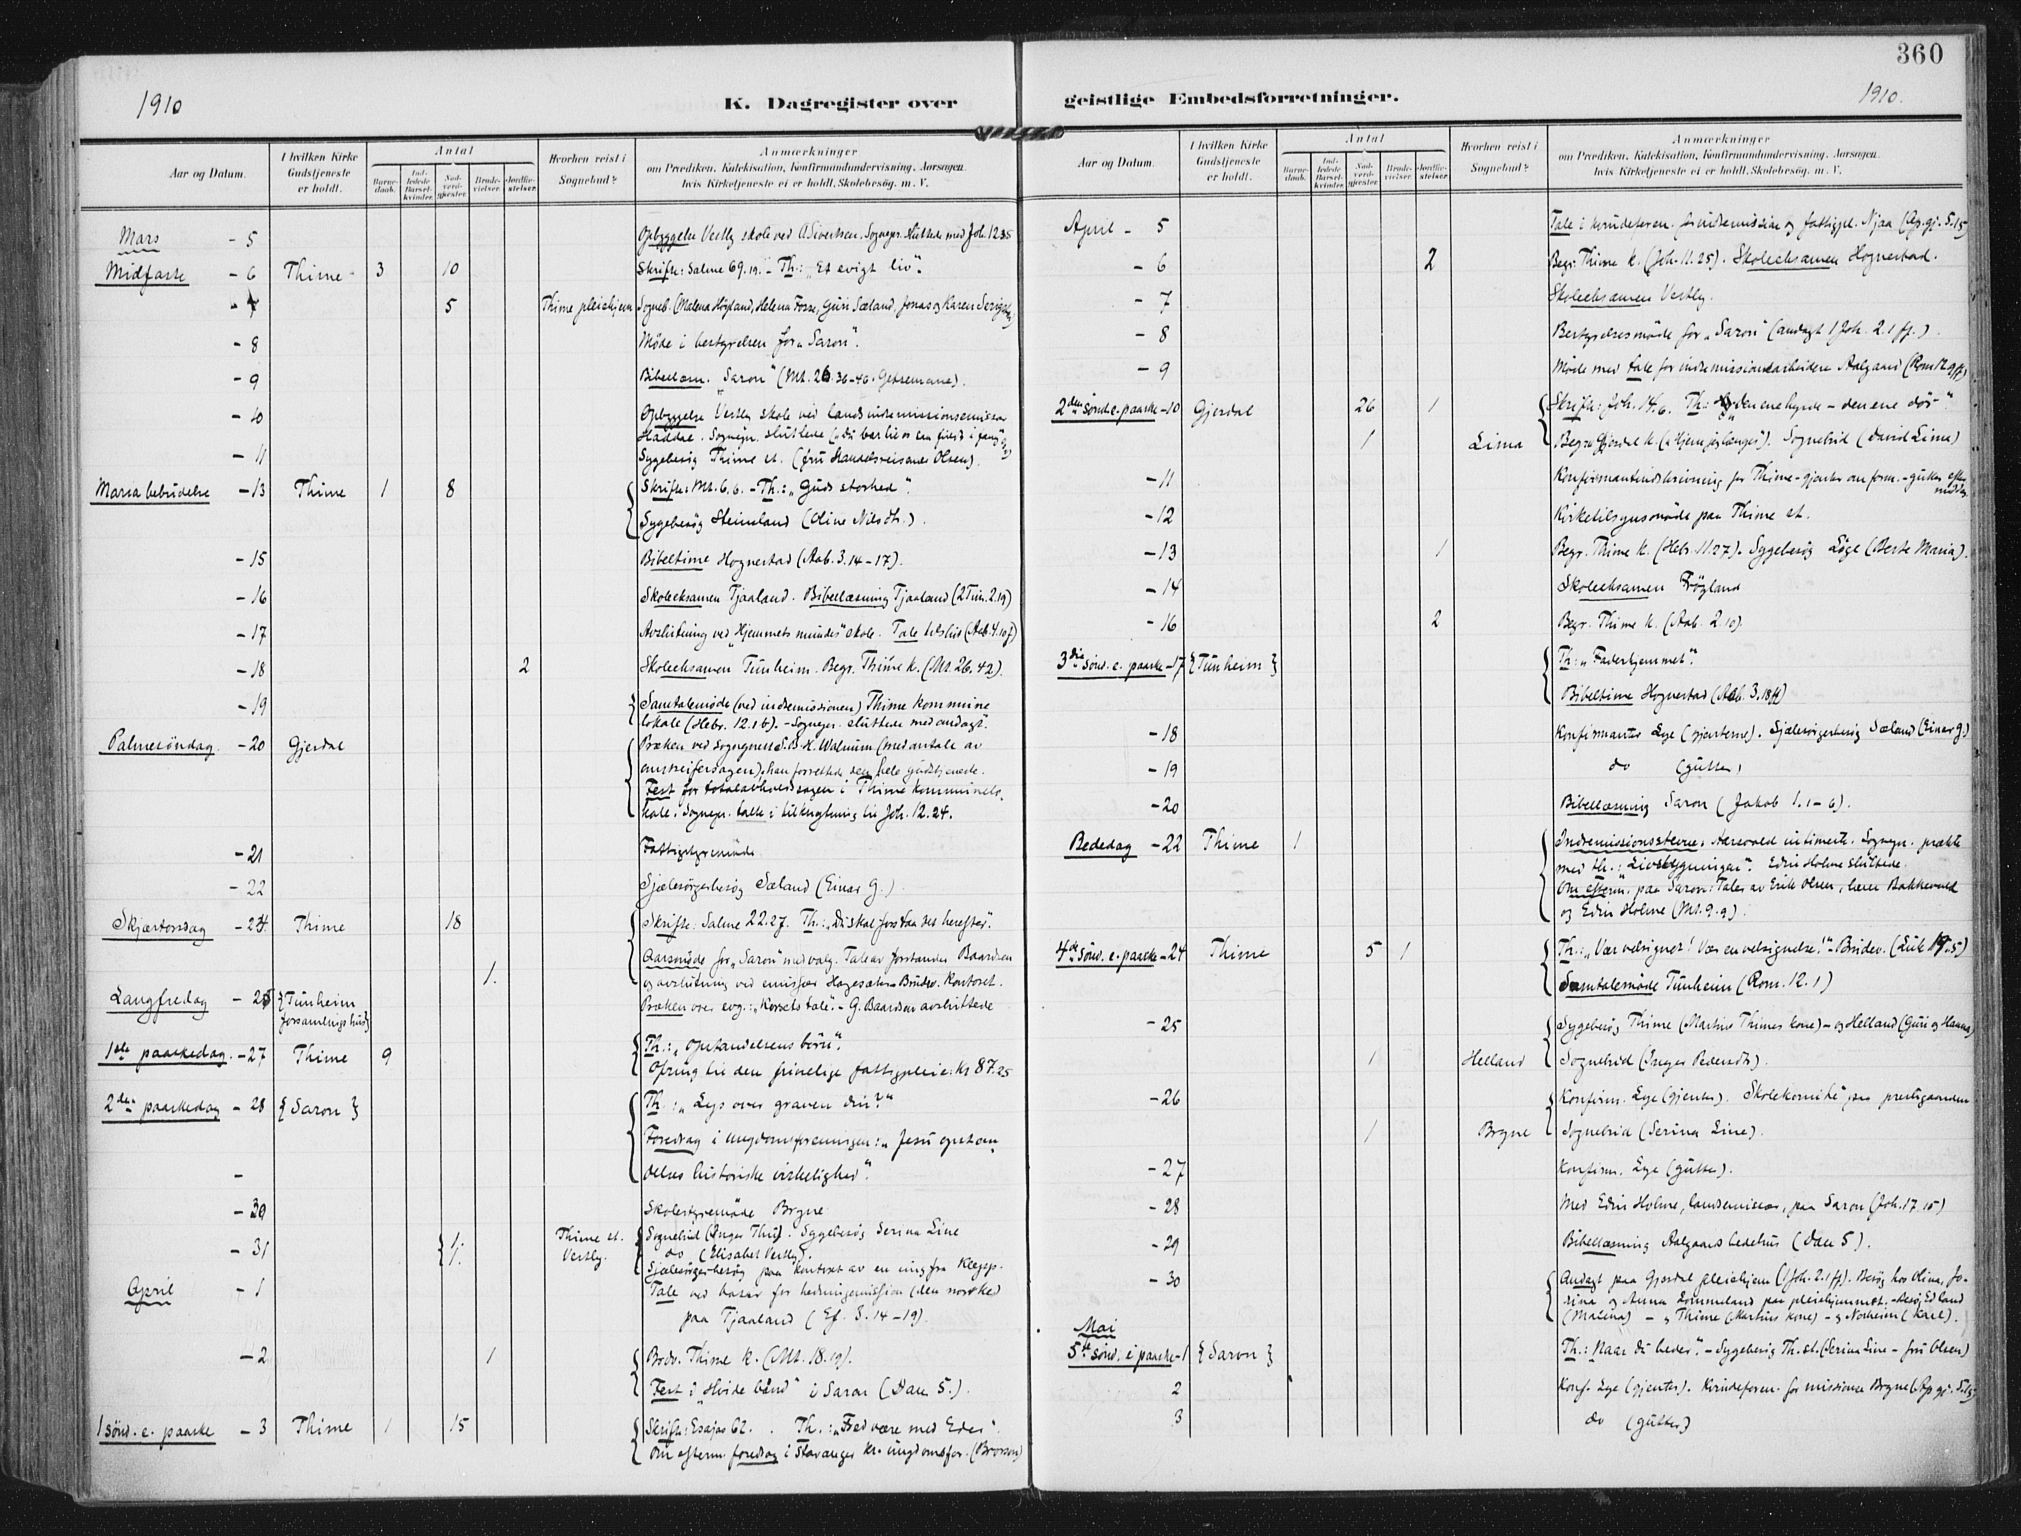 360
1910
K. Dagregister over
geistlige Embedsforretninger.
1910.
Aar og Datum.
I hvilken Kirke Gudstjeneste er holdt.
Antal
Barnedaab.
Indledede Barselkvinder.
Nadverdgjester
Brudevielser.
Jordfæstelser.
Hvorhen reist i Sognebud?
Anmærkninger
om Prædiken, Katekisation, Konfirmandundervisning, Aarsagen
hvis Kirketjeneste ei er holdt, Skolebesøg, m. V.
Mars - 5 Opbyggelse Vestly skole ved A. Sivertsen. Sognepr. sluttede med Joh. 12.35
Midfaste - 6 Thime 3 10 Skrifte: Salme 69.19. - Th: "Et evigt liv".
- 7 5 Thime pleiehjem Sogneb. (Malena Høyland, Helena Fosse, Guri Sæland, Jonas og Karen
- 8 Møde i bestyrelsen for "Saron".
- 9 Bibellæsn. "Saron" (Mt. 26.36-46. Getsemane).
- 10 Opbyggelse Vestly skole ved landsindremissionsemissær
Haddal. Sognepr. sluttede
- 11 Sygebesøg Thime st. (fru Handelsreisende Olsen).
Maria bebudelse - 13 Thime 1 8 Skrifte: Mt. 6.6. - Th.: "Guds storhed".
Sygebesøg Steinsland (Oline Nilsdtr.).
- 15 Bibeltime Hognestad (Aab. 3.14-17).
- 16 Skoleeksamen Tjaaland. Bibellæsning Tjaaland (2 Tim. 2.19)
- 17 Avslutning ved "Hjemmets mindes" skole. Tale tilslut (Aab. 4.10f)
- 18 2 Skoleeksamen Tunheim. Begr. Thime k. (Mt. 26.42).
- 19 Samtalemøde (ved indremissionen) Thime kommune
lokale (Hebr. 12.1b). - Sognepr. sluttede med andagt.
Palmesøndag - 20 Gjesdal Præken ved sogneprest S. B. K. Walnum (med omtale av
omstreifersagen), han forrettede den hele gudstjeneste.
Fest for totalavholdssagen i Thime kommunelo-
kale. Sognepr. talte i tilknytning til Joh. 12.24.
- 21 Fattigstyremøde
- 22 Sjælesørgerbesøg Sæland (Einar G.)
Skjærtorsdag - 24 Thime 18 Skrifte: Salme 22.27. Th.: "Du skal forstaa det herefter".
1. Aarsmøde for "Saron" med valg. Tale av forstander Baardsen
og avslutning ved emissær Hagesæter - Brudev. Kontoret.
Langfredag - 25 {Tunheim forsamlingshus} Præken over evg.: "Korsets tale". - G. Baardsen avsluttede
1ste paaskedag - 27 Thime 9 Th.: "Opstandelsens børn".
Ofring til den frivillige fattigpleie: kr 87.25
2den paaskedag - 28 {Saron} Th.: "Lys over graven din?"
Foredrag i ungdomsforeningen: "Jesu opstan-
delses historiske virkelighed".
-
- 30 Skolestyremøde Bryne
- 31 1. Thime st. Sognebud (Inger Thu). Sygebesøg Serina Line
1. Vestly. do (Elisabet Vestly).
Sjælesørgerbesøg paa kontoret av en ung fra Klepp.
April - 1 Tale ved basar for hedningemission (den norske)
paa Tjaaland (Ef. 3.14-19).
- 2 1 Brdv. Thime k. (Mt. 18.19).
Fest i "Hvide baand" i Saron (Dan. 5.).
1 sønd. e. paaske - 3 Thime 1 15 Skrift: Esajas 62. Th.: "Fred være med Eder".
Om efterm. foredrag i Stavanger kr. ungdomsfor. (Brorson)
Aar og Datum.
I hvilken Kirke Gudstjeneste er holdt.
Antal
Barnedaab.
Indledede Barselkvinder.
Nadverdgjester
Brudevielser.
Jordfæstelser.
Hvorhen reist i Sognebud?
Anmærkninger
om Prædiken, Katekisation, Konfirmandundervisning, Aarsagen
hvis Kirketjeneste ei er holdt, Skolebesøg, m. V.
April - 5 Tale i kvindeforen. for indremission og fattigpl. Njaa (Ap. gj. 5.15)
- 6 2 Begr. Thime k. (Joh. 11.25). Skoleeksamen Hognestad.
- 7 Skoleeksamen Vestly.
- 8 Bestyrelsesmøde for "Saron" (andagt 1 Joh. 2.1 ff.).
- 9 Møde med tale for indremissionsarbeidere Aalgaard (Rom 12.9ff)
2den sønd. e. paaske - 10 Gjesdal 26 1 Skrift: Joh. 14.6. Th: "den ene hyrde - den ene dør".
1 Lima Begr. Gjesdal k. ("Hjem jeg længes"). Sognebud (David Lima)
- 11 Konfirmantindskrivning for Thime - gjenter om form. - gutter eftermiddag.
- 12 Kirketilsynsmøde paa Thime st.
- 13 1 Begr. Thime k. (Hebr. 11.27). Sygebesøg Løge (Berte Maria).
- 14 Skoleeksamen Frøyland
- 16 2 Begr. Thime k. (Aab. 2.10).
3die sønd. e. paaske - 17 {Tunheim} Th: "Faderhjemmet".
Bibeltime Hognestad (Aab. 3.18ff)
- 18 Konfirmanter Lye (gjenterne). Sjælesørgerbesøg Sæland (Einar G.)
- 19 do (gutter)
- 20 Bibellæsning Saron (Jakob 1.1-6).
Bededag - 22 Thime 1 Indremissionsstevne. Aarsvold intimerte. Sognepr. prækte
med th.: "Livsbygningen". Edin Holme sluttede.
Om efterm. paa Saron: Taler av Erik Olsen, lærer Bakkevold
og Edin Holme (Mt. 9.9).
4de sønd. e. paaske - 24 Thime 5 1 Th.: "Vær velsignet! Vær en velsignelse!" - Brudev. (Luk 19.5)
Samtalemøde Tunheim (Rom. 12.1)
- 25 Sygebesøg Thime (Martius Thimes kone) - og Helland (Guri og Hanna)
1 Helland Sognebud (Inger Pedersdt).
- 26 Konfirm. Lye (gjenter). Skolekomite paa prestgaarden
1 Bryne Sognebud (Serina Line).
- 27 Konfirm. Lye (gutter).
- 28 Med Edin Holme, landsemissær, paa Saron (Joh. 17.15)
- 29 Bibellæsning Aalgaards bedehus (Dan 5).
- 30 Andagt paa Gjesdal pleiehjem (1 Joh. 2.1 ff). Besøg hos Olina, Jo-
sina og Anna Lommeland paa pleiehjemmet. - Besøg Edland
(Malena) - og Thime (Martius kone) - og Norheim (Karl).
Mai
5te sønd. e paaske - 1 {Saron} Th.: "Naar du beder". - Sygebesøg Th. st. (Serina Line - fru Olsen)
2 Konf. Lye (gjenter). Kvindeforen. for missionen Bryne (Ap gj. 5.15)
3 do (gutter)